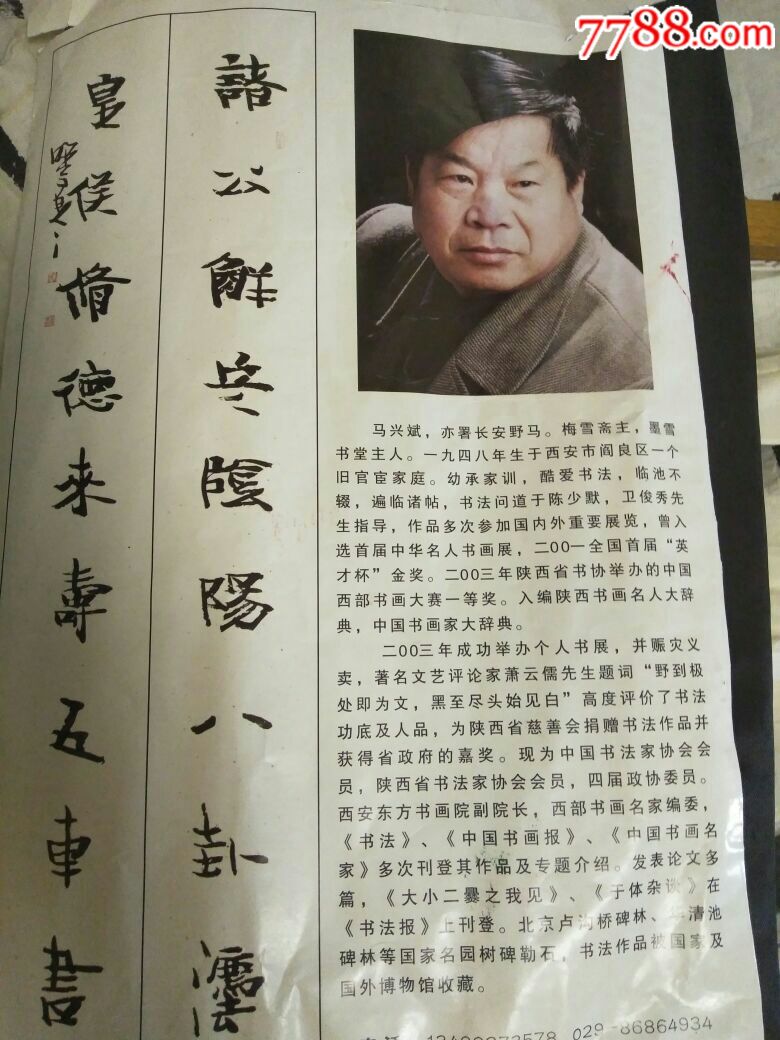 7788.com
諸公解兵陰陽八卦
皇侯脩德來壽五車書
马兴斌，亦署长安野马。梅雪斋主，墨雪
书堂主人。一九四八年生于西安市阎良区一个
旧官宦家庭。幼承家训，酷爱书法，临池不
辍，遍临诸帖，书法问道于陈少默，卫俊秀先
生指导，作品多次参加国内外重要展览，曾入
选首届中华名人书画展，二00一全国首届“英
才杯”金奖。二00三年陕西省书协举办的中国
西部书画大赛一等奖。入编陕西书画名人大辞
典，中国书画家大辞典。
二00三年成功举办个人书展，并赈灾义
卖，著名文艺评论家萧云儒先生题词“野到极
处即为文，黑至尽头始见白”高度评价了书法
功底及人品，为陕西省慈善会捐赠书法作品并
获得省政府的嘉奖。现为中国书法家协会会
员，陕西省书法家协会会员，四届政协委员。
西安东方书画院副院长，西部书画名家编委，
《书法》、《中国书画报》、《中国书画名
家》多次刊登其作品及专题介绍。发表论文多
篇，《大小二爨之我见》、《于体杂谈》在
《书法报》上刊登。北京卢沟桥碑林、华清池
碑林等国家名园树碑勒石，书法作品被国家及
国外博物馆收藏。
029-86864934